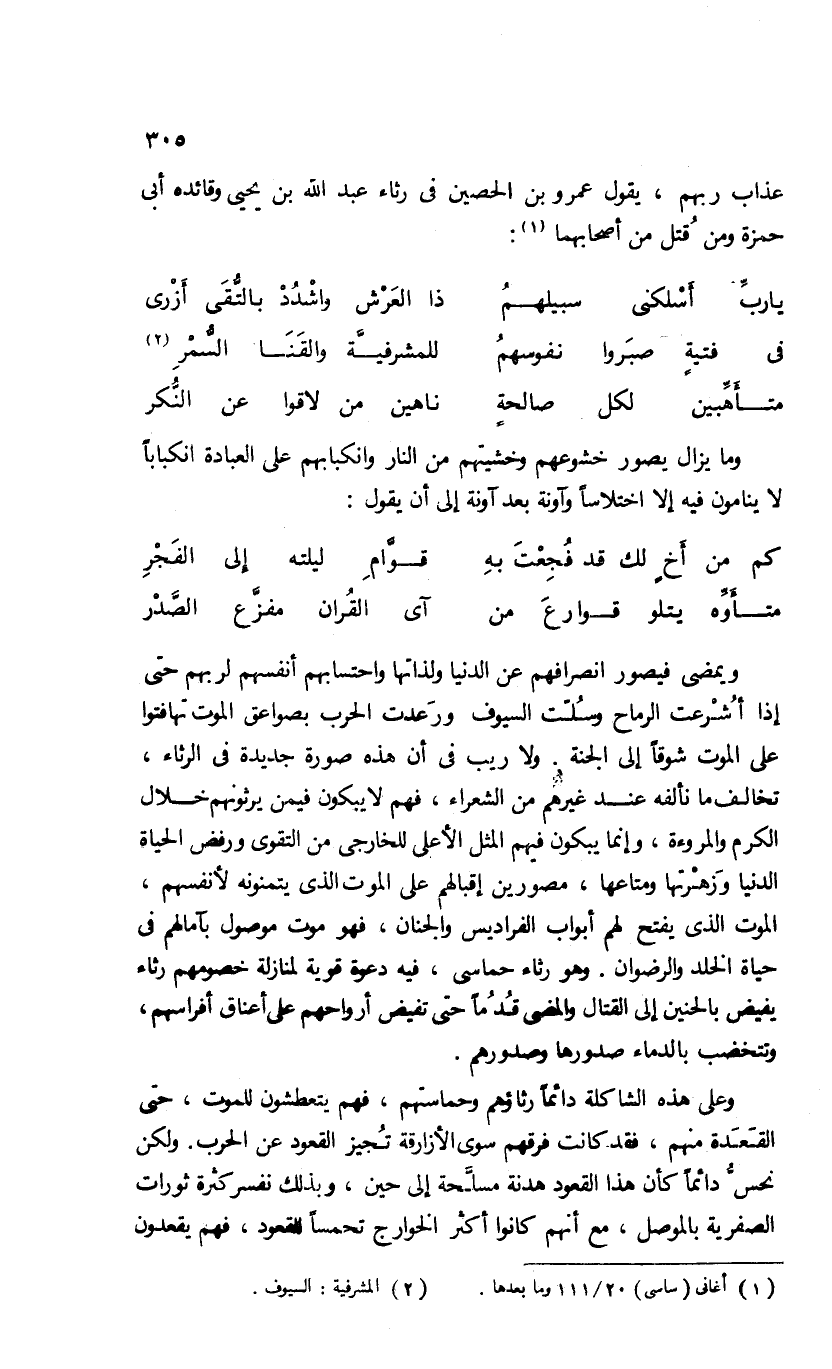 ٣٠٥
عذاب ربهم ، يقول عمرو بن الحصين فى رثاء عبد الله بن يحيى وقائده أبى
حمزة ومن قُتل من أصحابهما (١) :
ياربِّ أَسْلكنى سبيلهمُ ذا العَرْش واشْدُدْ بالتُّقَى أَزْرى
فى فتيةٍ صبَروا نفوسهمُ للمشرفيَّة والقَنَا السُّمْرِ (٢)
متأَهِّبين لكل صالحةٍ ناهين من لاقوا عن النُّكر
وما يزال يصور خشوعهم وخشيتهم من النار وانكبابهم على العبادة انكباباً
لا ينامون فيه إلا اختلاساً وآونة بعد آونة إلى أن يقول :
كم من أَخٍ لك قد فُجِعْتَ بهِ قوَّامِ ليلته إلى الفَجْرِ
متأَوِّه يتلو قوارعَ من آى القُران مفزَّع الصَّدْر
ويمضى فيصور انصرافهم عن الدنيا ولذاتها واحتسابهم أنفسهم لربهم حتى
إذا أُشْرعت الرماح وسُلَّت السيوف ورَعدت الحرب بصواعق الموت تهافتوا
على الموت شوقاً إلى الجنة . ولا ريب فى أن هذه صورة جديدة فى الرثاء ،
تخالف ما نألفه عند غيرهم من الشعراء ، فهم لا يبكون فيمن يرثونهم خلال
الكرم والمروءة ، وإنما يبكون فيهم المثل الأعلى للخارجى من التقوى ورفض الحياة
الدنيا وزَهْرتها ومتاعها ، مصورين إقبالهم على الموت الذى يتمنونه لأنفسهم ،
الموت الذى يفتح لهم أبواب الفراديس والجنان ، فهو موت موصول بآمالهم فى
حياة الخلد والرضوان . وهو رثاء حماسى ، فيه دعوة قوية لمنازلة خصومهم رثاء
يفيض بالحنين إلى القتال والمضى قُدُماً حتى تفيض أرواحهم على أعناق أفراسهم ،
وتتخضب بالدماء صدورها وصدورهم .
وعلى هذه الشاكلة دائماً رثاؤهم وحماستهم ، فهم يتعطشون للموت ، حتى
القَعَدة منهم ، فقد كانت فرقهم سوى الأزارقة تُجيز القعود عن الحرب. ولكن
نحسُّ دائماً كأن هذا القعود هدنة مسلَّحة إلى حين ، وبذلك نفسر كثرة ثورات
الصفرية بالموصل ، مع أنهم كانوا أكثر الخوارج تحمساً للقعود ، فهم يقعدون
(١) أغانى (ساسى) ١١١/٢٠ وما بعدها . (٢) المشرفية : السيوف .